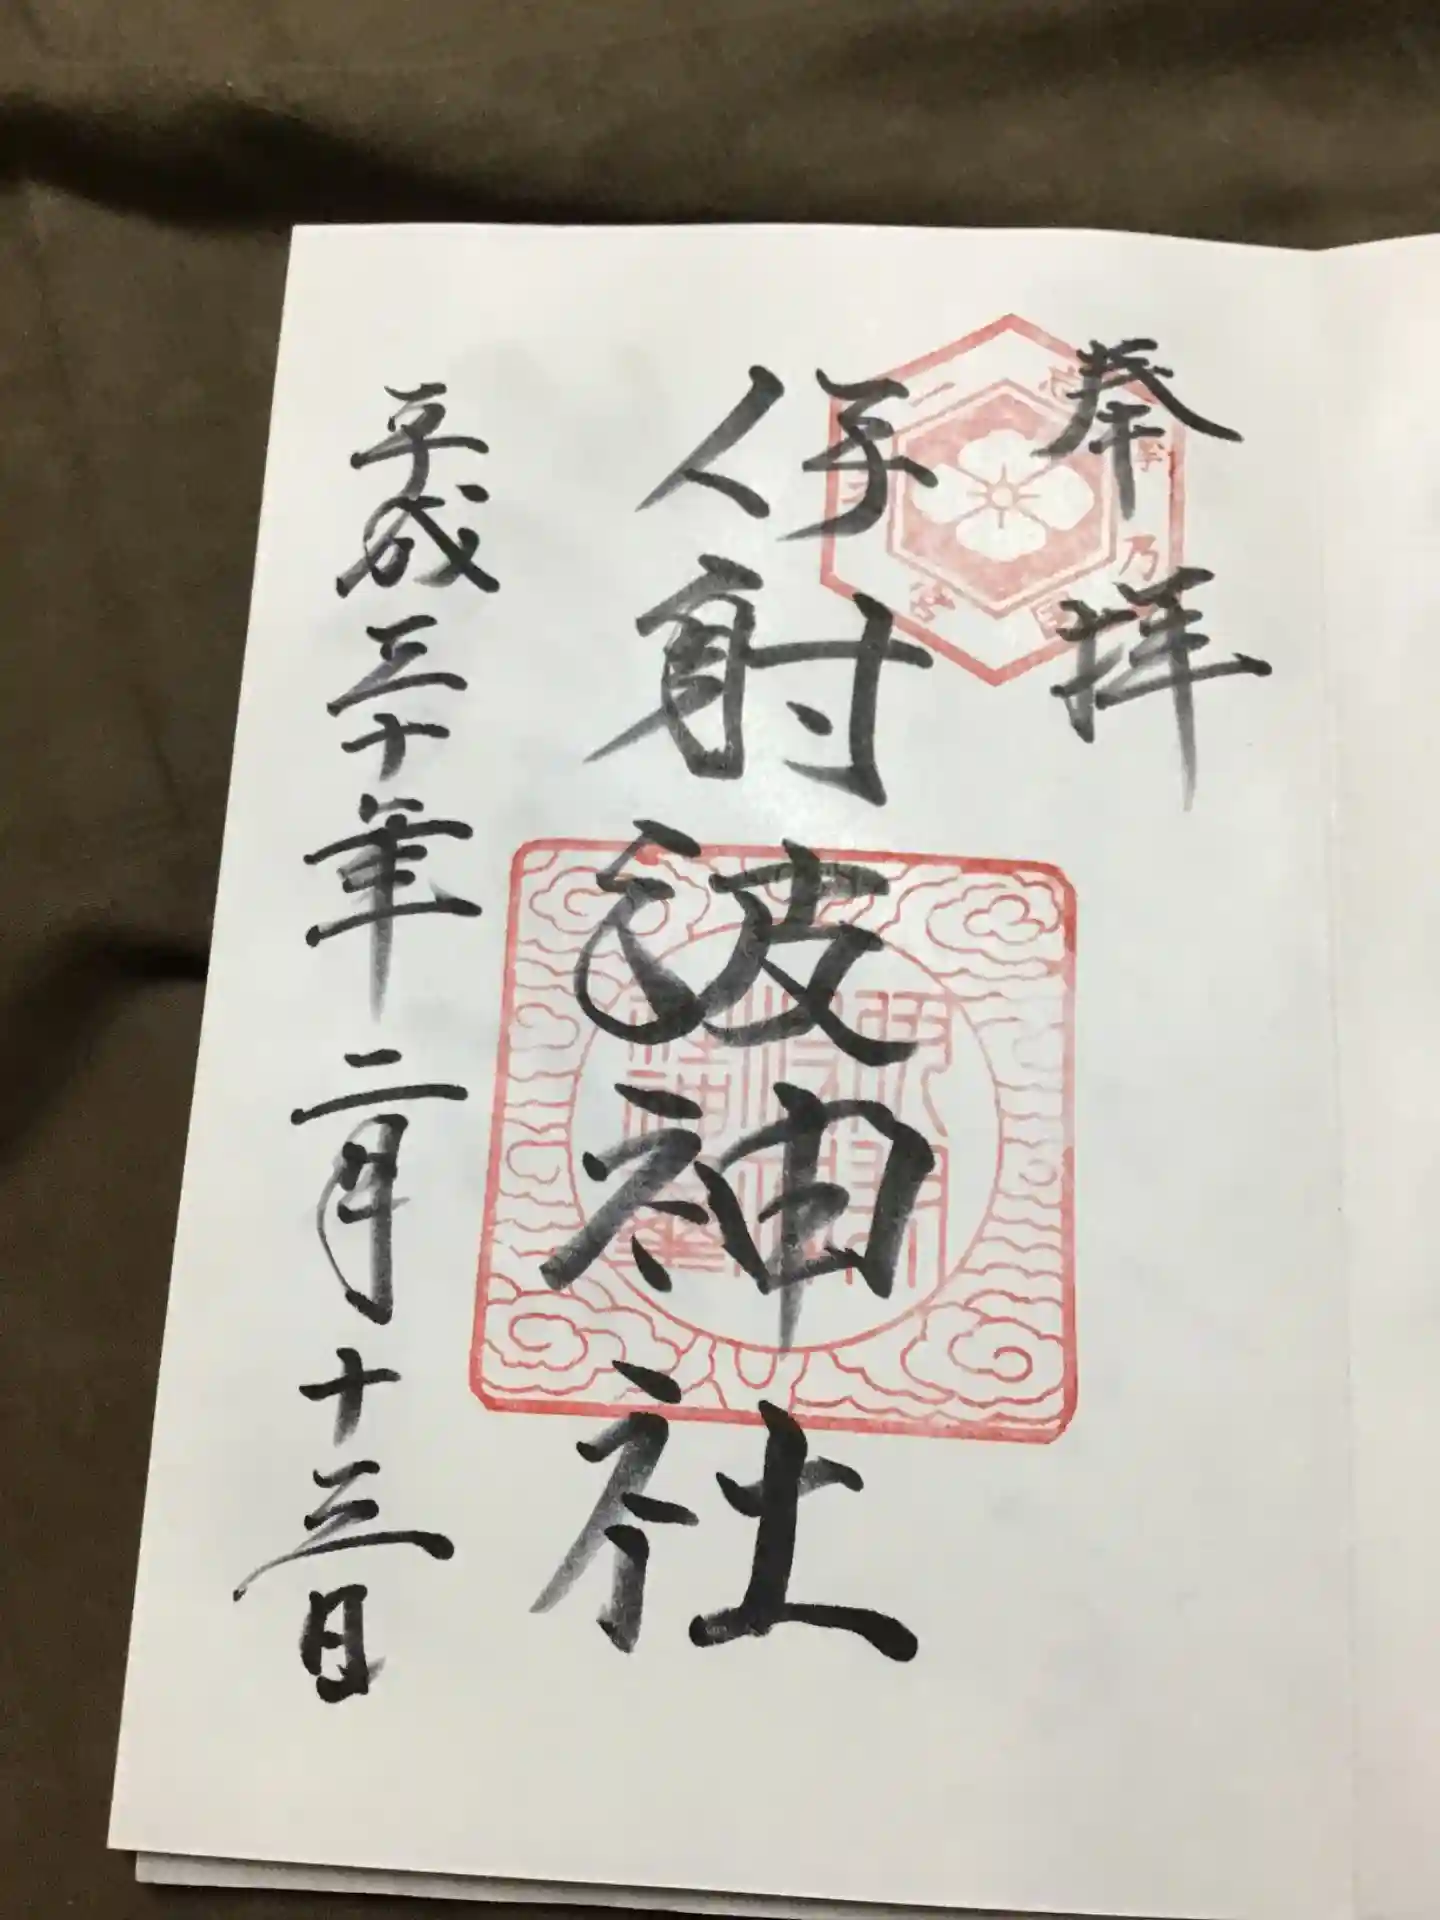 奉拝
志摩乃国
一之宮
伊射波神社
平成三十年二月十三日